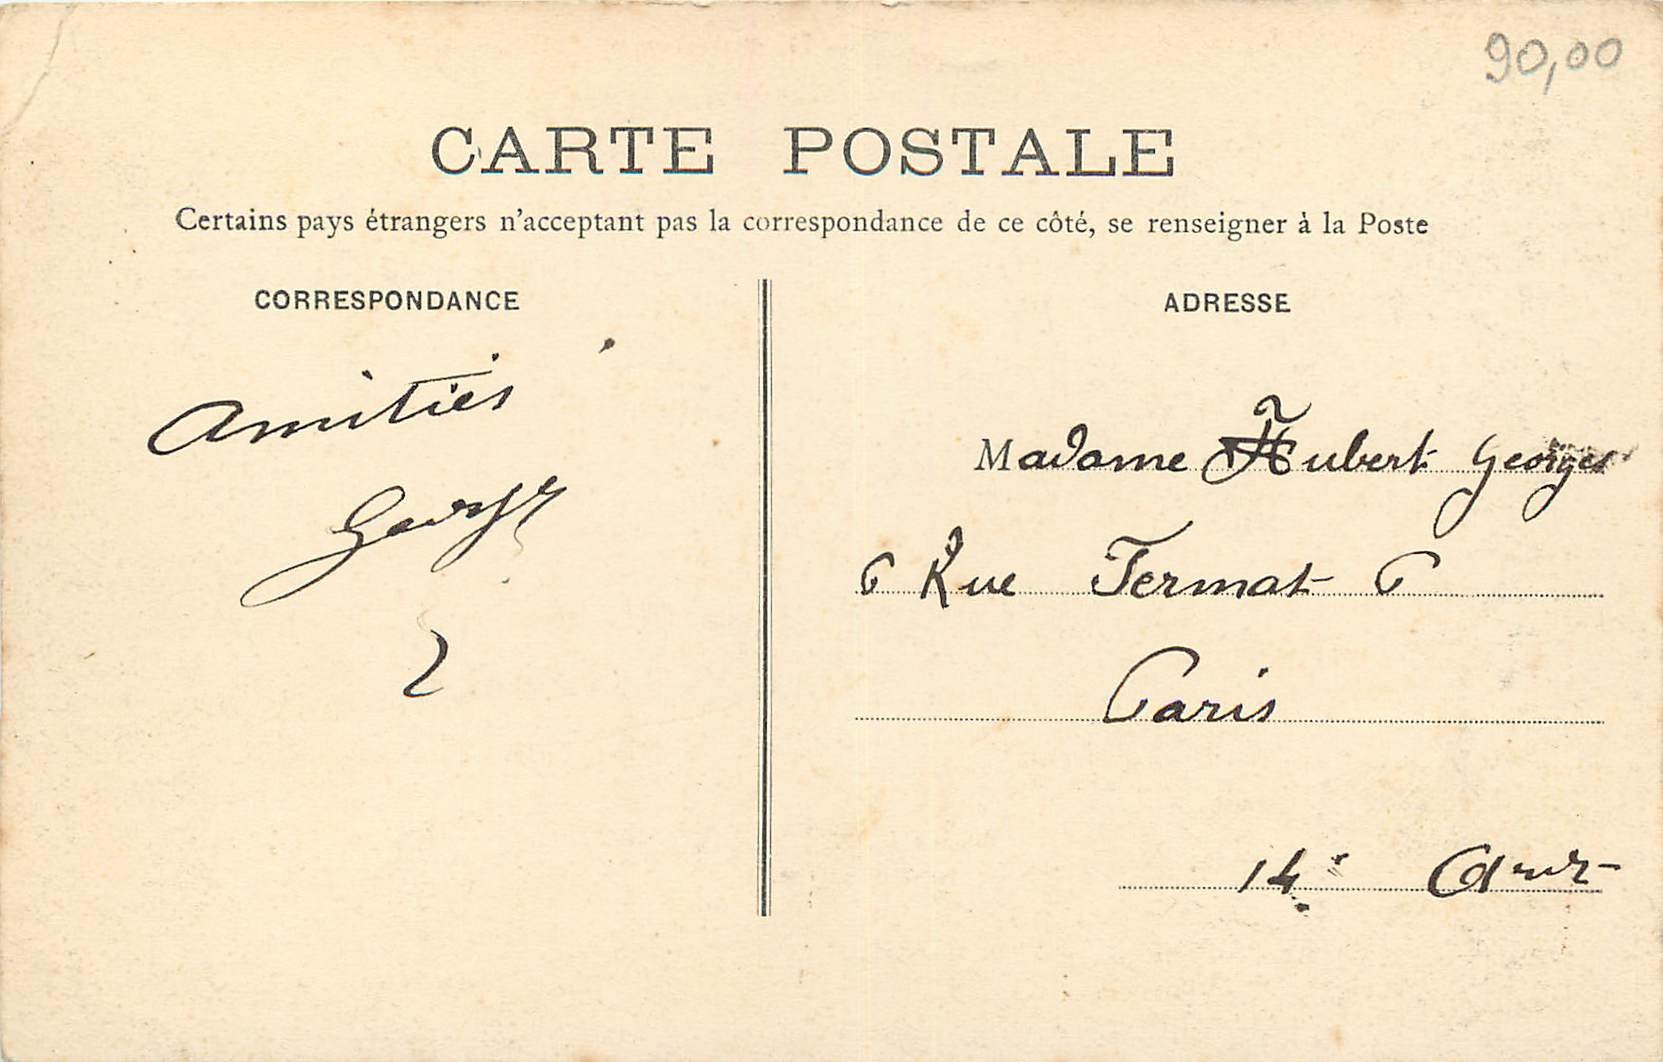 90,00
CARTE POSTALE
Certains pays étrangers n'acceptant pas la correspondance de ce côté, se renseigner à la Poste
CORRESPONDANCE
Amitiés
Georges
ADRESSE
Madame Hubert Georges
6 Rue Fermat 6
Paris
14e Arrt